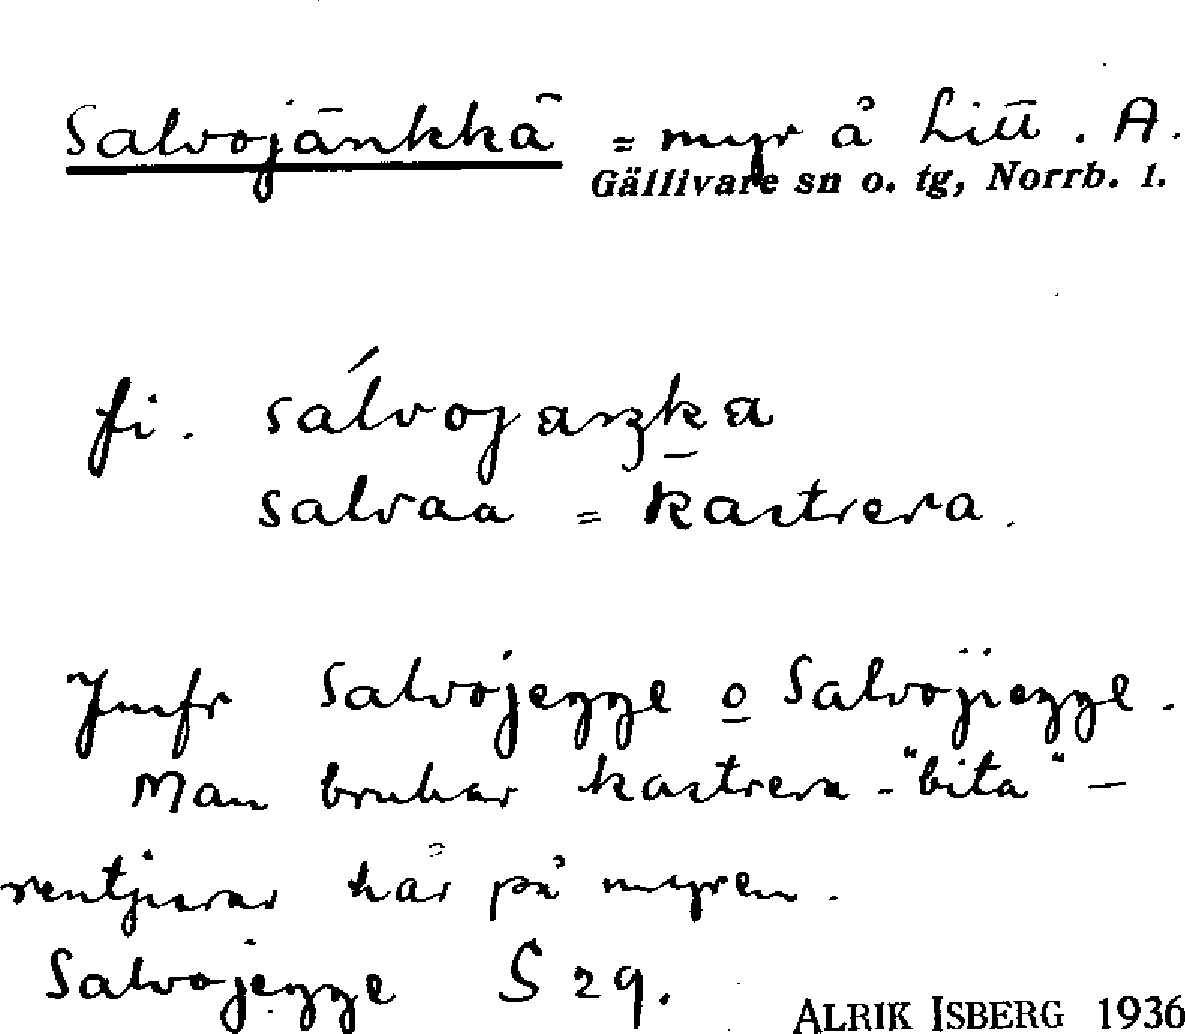 Salvojänkkä = myr å Litt. A.
Gällivare sn o. tg, Norrb. l.
fi. sálvojaŋka
salvaa = kastrera.
Jmfr Salvojegge o Salvojiegge.
Man brukar kastrera - "bita" -
rentjurar här på myren.
Salvojegge S 29.
ALRIK ISBERG 1936